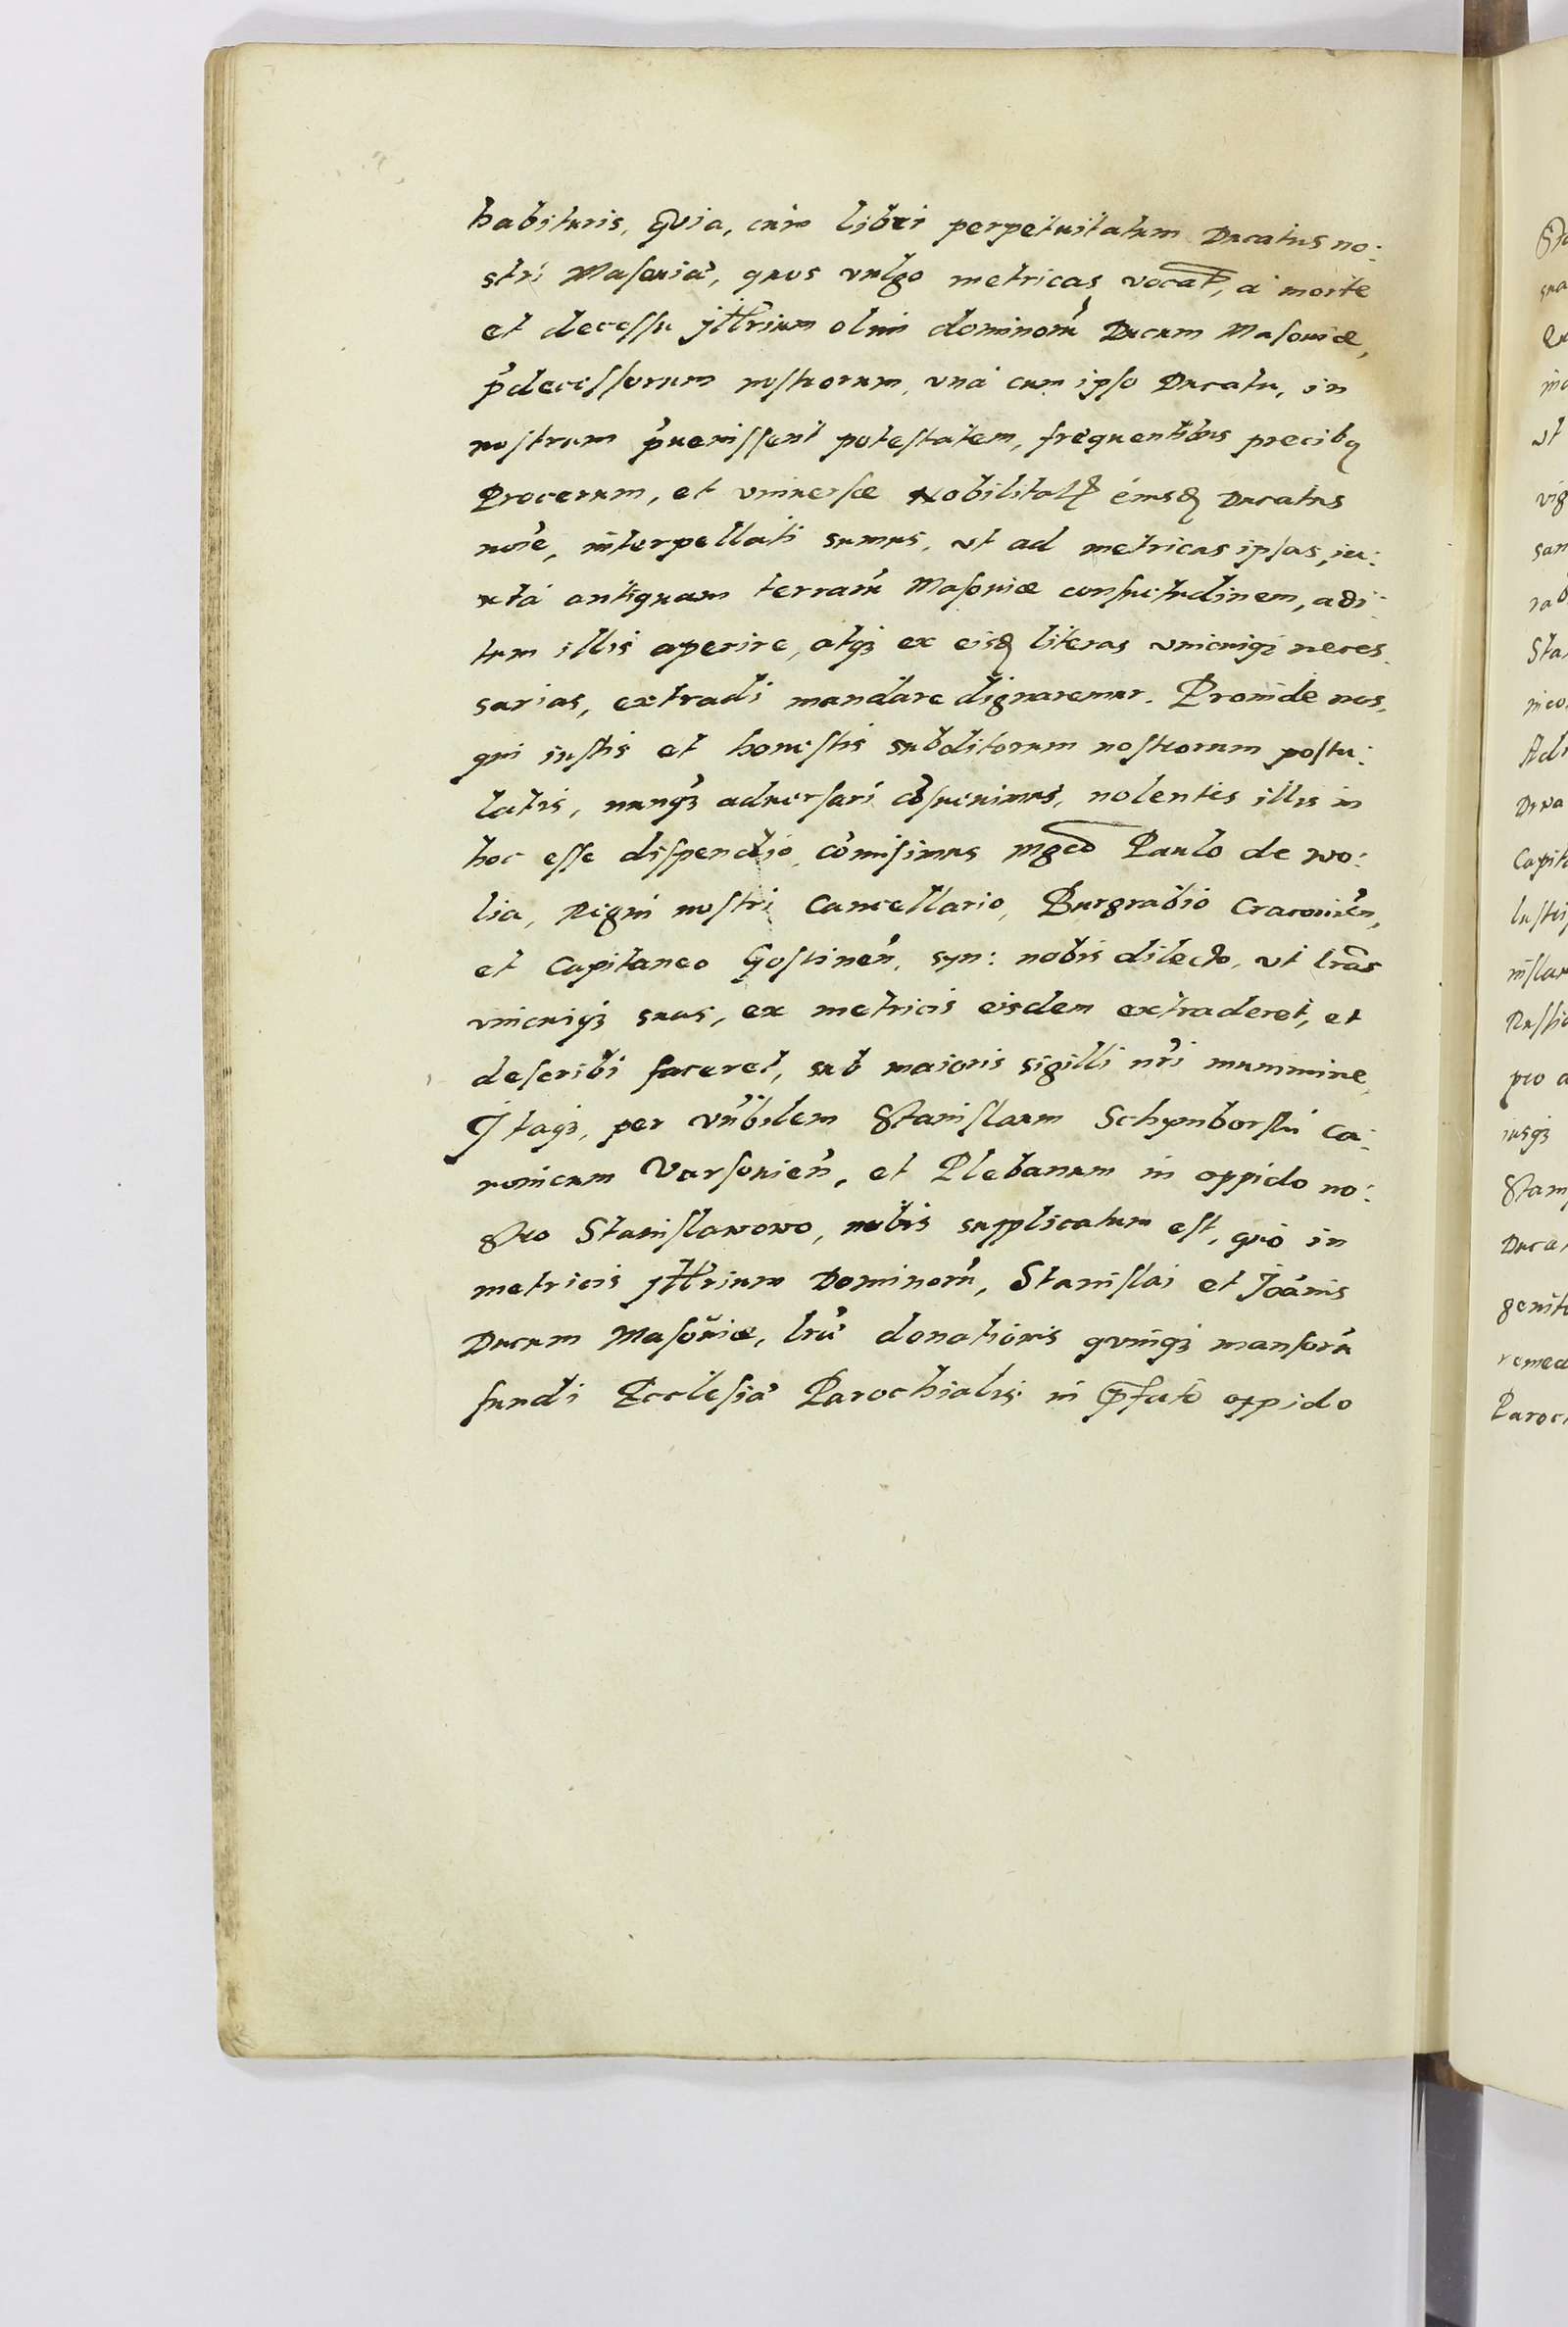 habituris, Quia, cum libri perpetuitatum Ducatus no:
stri Masouiae, quos vulgo metricas vocāt, à morte
et decessu jllr̄ium olim dominorū Ducum Masouiae,
p̄decessorum nostrorum, vnà cum ipso Ducatu, in
nostram p̄uenissent potestatem, frequentibus precibꝯ
Procerum, et vniuersae Nobilitatꝭ eiusdꝫ Ducatus
nr̄e, interpellati sumus, vt ad metricas ipsas, iu:
xtà antiquam terrarū Masouiae consuetudinem, adi:
tum illis aperire, atqꝫ ex eisdꝫ literas vnicuiqꝫ neces
sarias, extradi mandare dignaremur. Proinde nos,
qui iustis et honestis subditorum nostrorum postu:
latis, nunqꝫ aduersari cōsueuimus, nolentes illis in
hoc esse dispendio, cōmisimus mgcō Paulo de Wo:
lia, Regni nostri Cancellario, Burgrabio Cracouień,
et Capitaneo Gostineń, syn: nobis dilecto, vt lrās
vnicuiqꝫ suas, ex metricis eisdem extraderet, et
describi faceret, sub maioris sigilli nr̄i munimine
Jtaqꝫ, per vn̄bilem Stanislaum Schymborskī Ca:
nonicum Varsouień, et Plebanum in oppido no:
stro Stanislawowo, nobis supplicatum est, qūo in
metricis jllr̄ium Dominorū, Stanislai et Joānis
Ducum Masouiae, lrae donationis quinqꝫ mansorū
fundi Ecclesiae Parochialis in p̄fato oppido